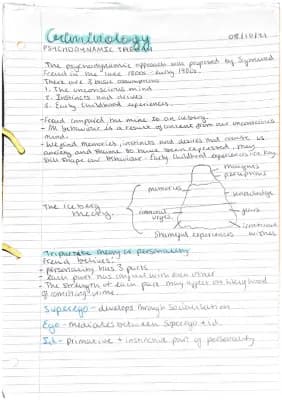 Criminology
08/10/21
PSYCHODYNAMIC THEORY
The psychodynamic approach was proposed by Sigmund
Freud in the late 1800s - early 1900s.
There are 3 basic assumptions
1. The unconscious mind
2. Instincts and drives
3. Early childhood experiences.
-Freud compared the mind to an iceberg.
- All behaviour is a result of content from our unconscious
mind.
- We find memories, instincts and desires that cause us
anxiety and trauma to have been repressed, they
still shape our behaviour - Early childhood experiences are key
The iceberg
theory.
thoughts
perceptions
memories
knowledge
immoral
urges
fears
shameful experiences
irrational
wishes
Tripartite theory of personality
Freud believes:
- personality has 3 parts
- Each parts has conflict with each other
- The strength of each part may affect on likelihood
of comitting crime.
Superego - develops through socialisation
Ego - mediates between superego + id
Id - Primative + instinctive part of personality